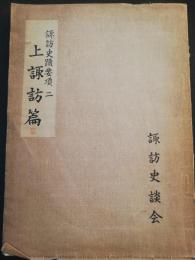 諏訪史蹟要項 二
上諏訪篇
諏訪史談会